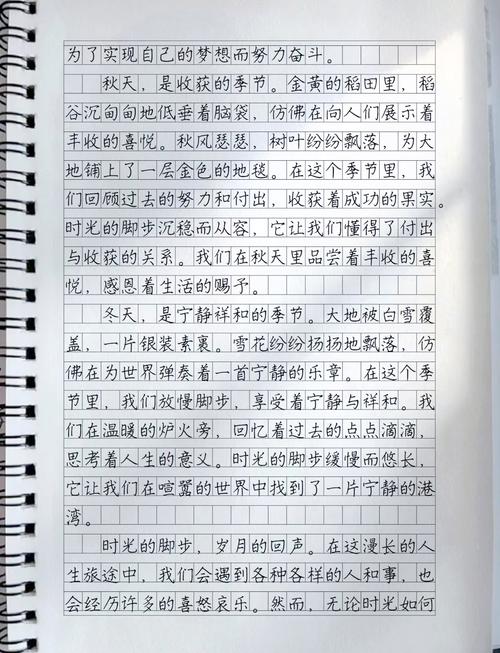 为了实现自己的梦想而努力奋斗。
秋天，是收获的季节。金黄的稻田里，稻
谷沉甸甸地低垂着脑袋，仿佛在向人们展示着
丰收的喜悦。秋风瑟瑟，树叶纷纷飘落，为大
地铺上了一层金色的地毯。在这个季节里，我
们回顾过去的努力和付出，收获着成功的果实。
时光的脚步沉稳而从容，它让我们懂得了付出
与收获的关系。我们在秋天里品尝着丰收的喜
悦，感恩着生活的赐予。
冬天，是宁静祥和的季节。大地被白雪覆
盖，一片银装素裹。雪花纷纷扬扬地飘落，仿
佛在为世界弹奏着一首宁静的乐章。在这个季
节里，我们放慢脚步，享受着宁静与祥和。我
们在温暖的炉火旁，回忆着过去的点点滴滴，
思考着人生的意义。时光的脚步缓慢而悠长，
它让我们在喧嚣的世界中找到了一片宁静的港
湾。
时光的脚步，岁月的回声。在这漫长的人
生旅途中，我们会遇到各种各样的人和事，也
会经历许多的喜怒哀乐。然而，无论时光如何